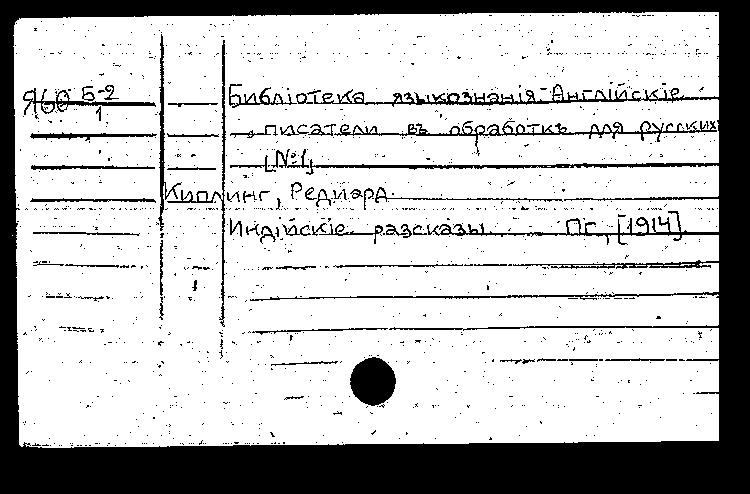 Я60 Б-2/1
Библiотека языкознанiя. Англiйскiе
писатели въ обработкъ для русских
[№1]
Киплинг, Редиард.
Индiйскiе разсказы Пг., [1914].